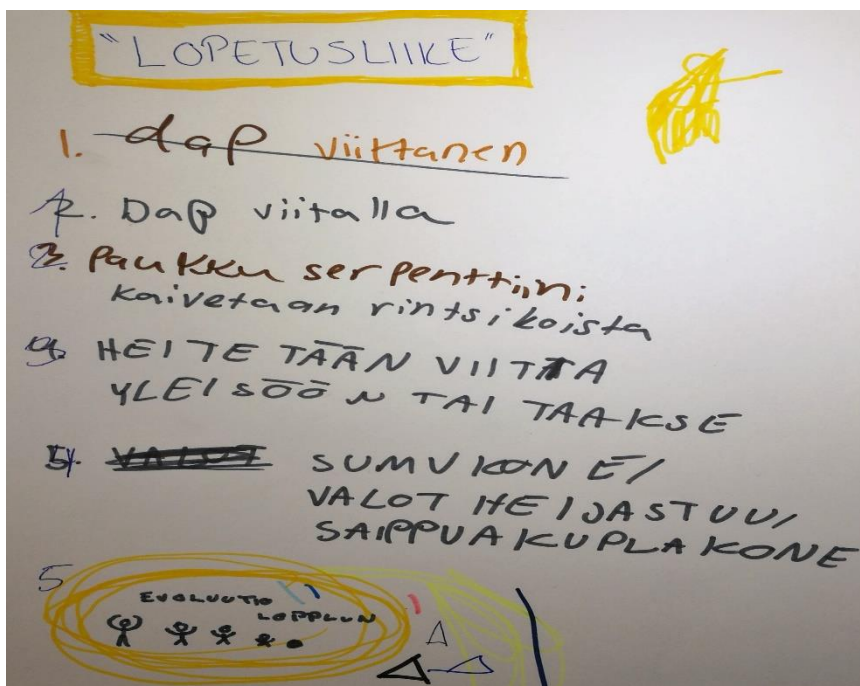 "LOPETUSLIIKE"
1. dap viittanen
2. Dap viitalla
3. Paukku serpenttiini
kaivetaan rintsikoista
4. HEITETÄÄN VIITTA
YLEISÖÖN TAI TAAKSE
5. VALOT SUMUKONE/
VALOT HEIJASTUU/
SAIPPUAKUPLAKONE
5
EVOLUUTIO
LOPPUUN